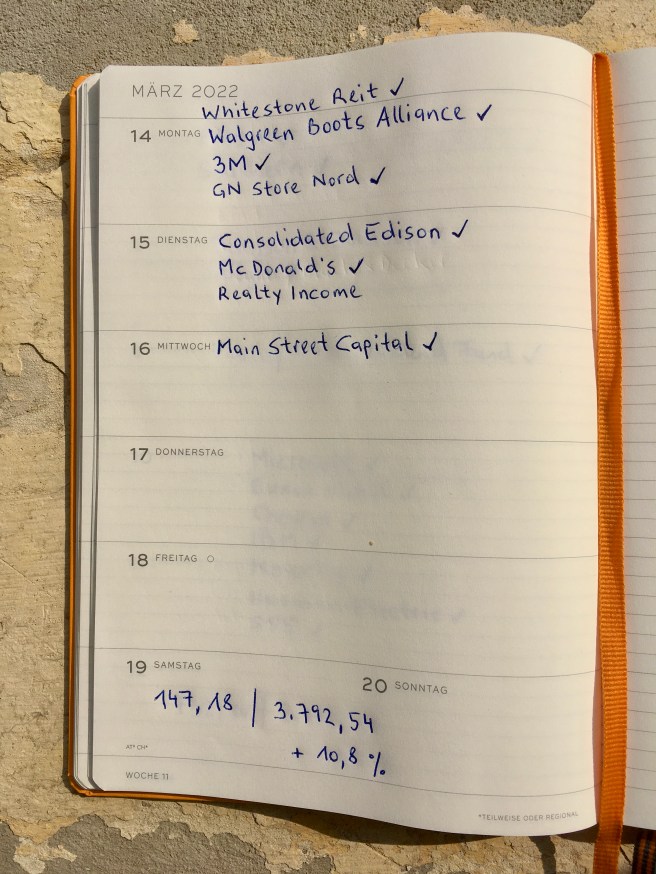 MÄRZ 2022
Whitestone Reit ✓
14 MONTAG Walgreen Boots Alliance ✓
3M ✓
GN Store Nord ✓
15 DIENSTAG Consolidated Edison ✓
McDonald's ✓
Realty Income
16 MITTWOCH Main Street Capital ✓
17 DONNERSTAG
18 FREITAG
19 SAMSTAG
147,18 | 3.792,54
+ 10,8 %
20 SONNTAG
AT* CH*
WOCHE 11
*TEILWEISE ODER REGIONAL